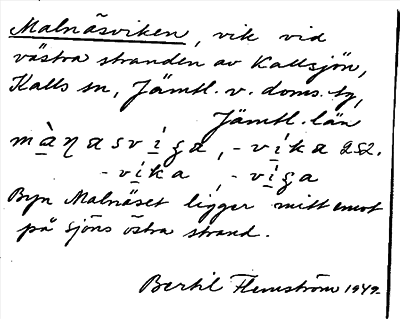 Malnäsviken, vik vid
västra stranden av Kallsjön,
Kalls sn, Jämtl. v. doms. tg,
Jämtl. län
màŋasviga, -víka 252.
-víka, -víga
Byn Malnäset ligger mitt emot
på sjöns östra strand.
Bertil Flemström 1949.